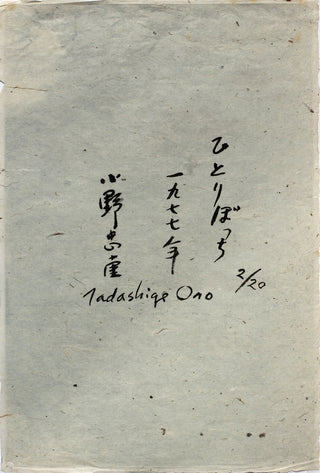 ひとりぼっち
2/20
一九七七年
小野忠重
Tadashige Ono